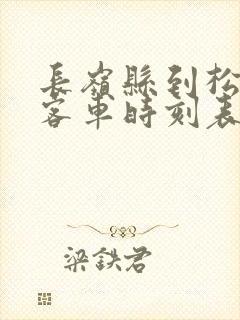 長嶺縣到松
客車時刻表
梁鉄君